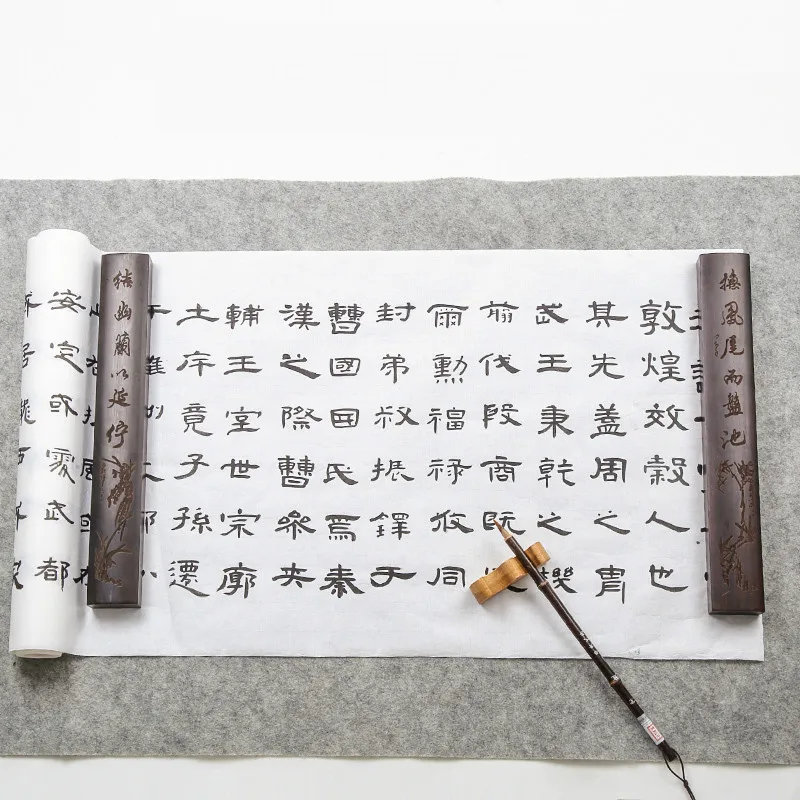 風尾而盤池
敦煌效穀人也
其先蓋周之胄
武王秉乾之機
前伐殷商既
爾勳福祿攸同
封弟叔振鐸于
曹國因氏焉秦
漢之際曹參夾
輔王室世宗廓
土斥竟子孫遷
結幽蘭以延佇
安定或處武都